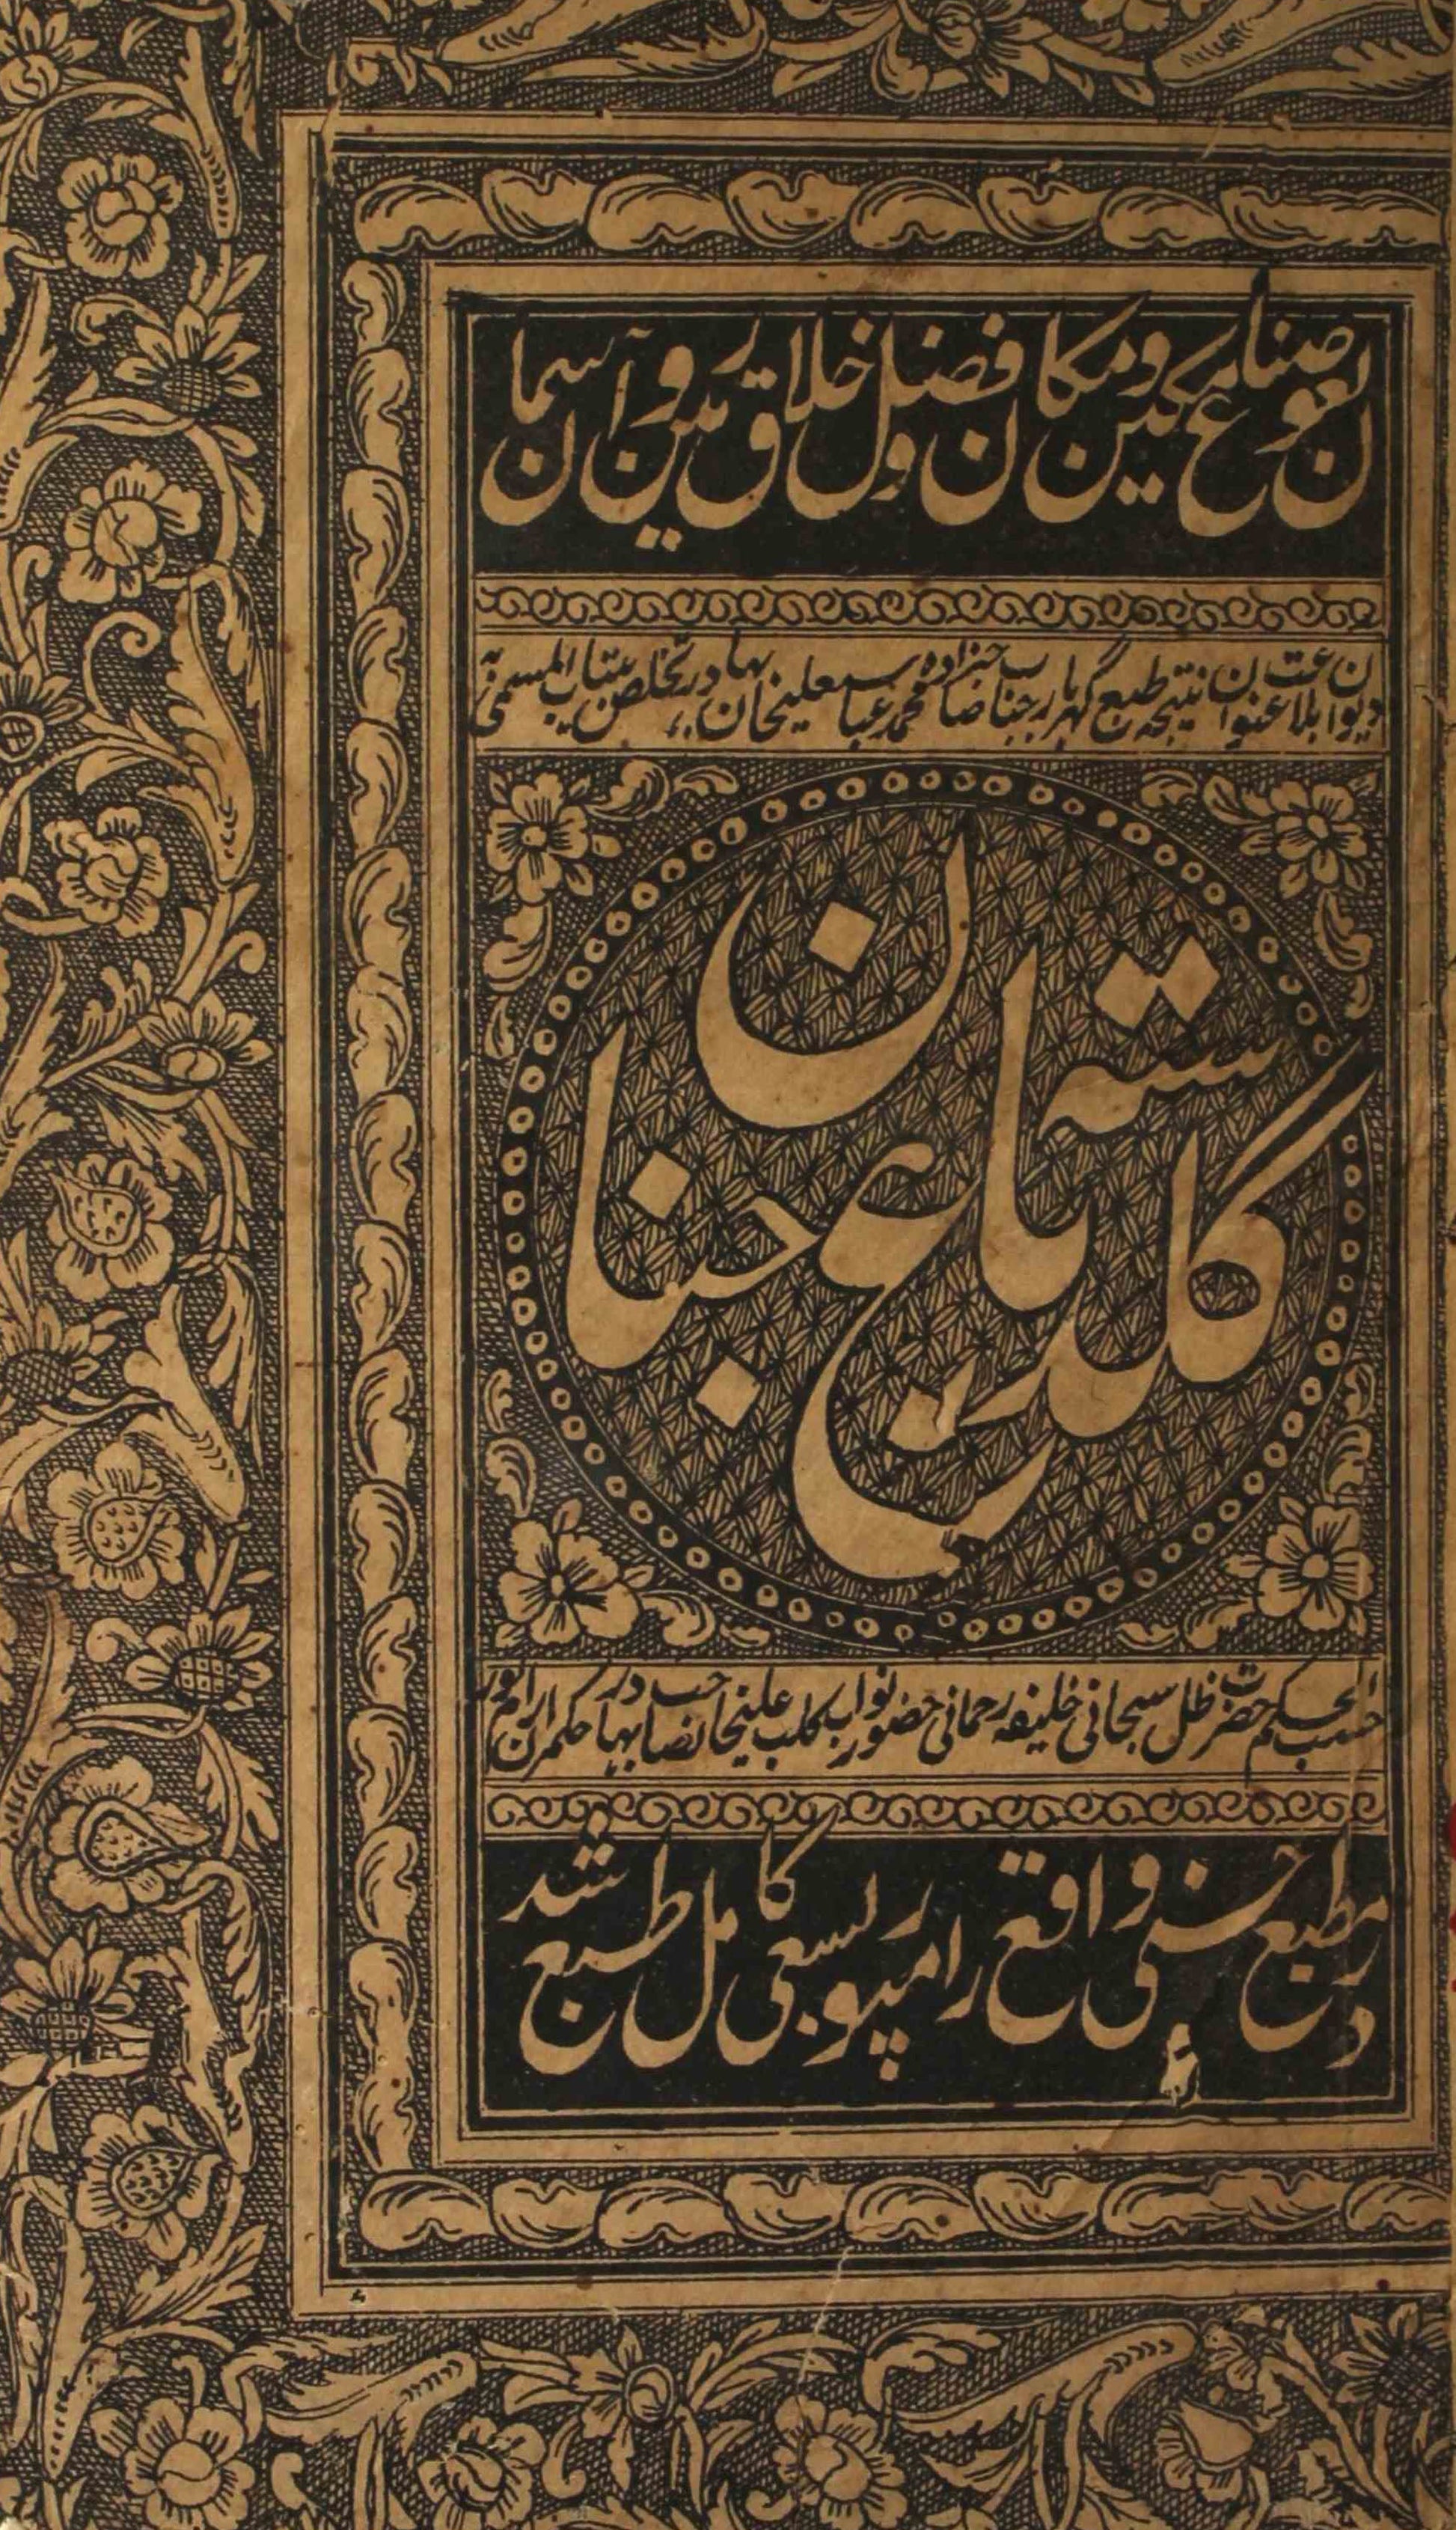 بعون صناع مکین و مکان و فضل خلاق زمین و آسمان
دیوان بلاغت عنوان نتیجه طبع گهربار جناب صاحبزاده محمد عباس علیخان بهادر تخلص بیتاب المسمی به
گلدسته باغ جنان
حسب الحکم حضرت ظل سبحانی خلیفه رحمانی حضور نواب کلب علیخان صاحب بهادر حکمران رامپور
در مطبع حسنی واقع رامپور بسعی کامل طبع شد